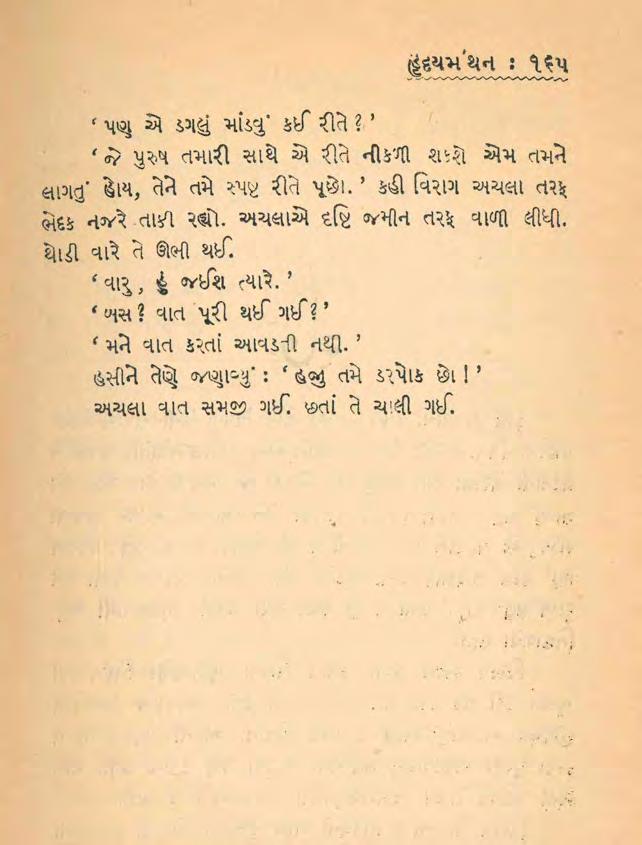 હૃદયમંથન : ૧૬૫
‘ પણ એ ડગલું માંડવું કઈ રીતે ? ’
‘ જે પુરુષ તમારી સાથે એ રીતે નીકળી શકશે એમ તમને
લાગતું હોય, તેને તમે સ્પષ્ટ રીતે પૂછો. ’ કહી વિરાગ અચલા તરફ
ભેદક નજરે તાકી રહ્યો. અચલાએ દૃષ્ટિ જમીન તરફ વાળી લીધી.
થોડી વારે તે ઊભી થઈ.
‘ વારુ, હું જઈશ ત્યારે. ’
‘ બસ ? વાત પૂરી થઈ ગઈ ? ’
‘ મને વાત કરતાં આવડતી નથી. ’
હસીને તેણે જણાવ્યું : ‘ હજી તમે ડરપોક છો ! ’
અચલા વાત સમજી ગઈ. છતાં તે ચાલી ગઈ.